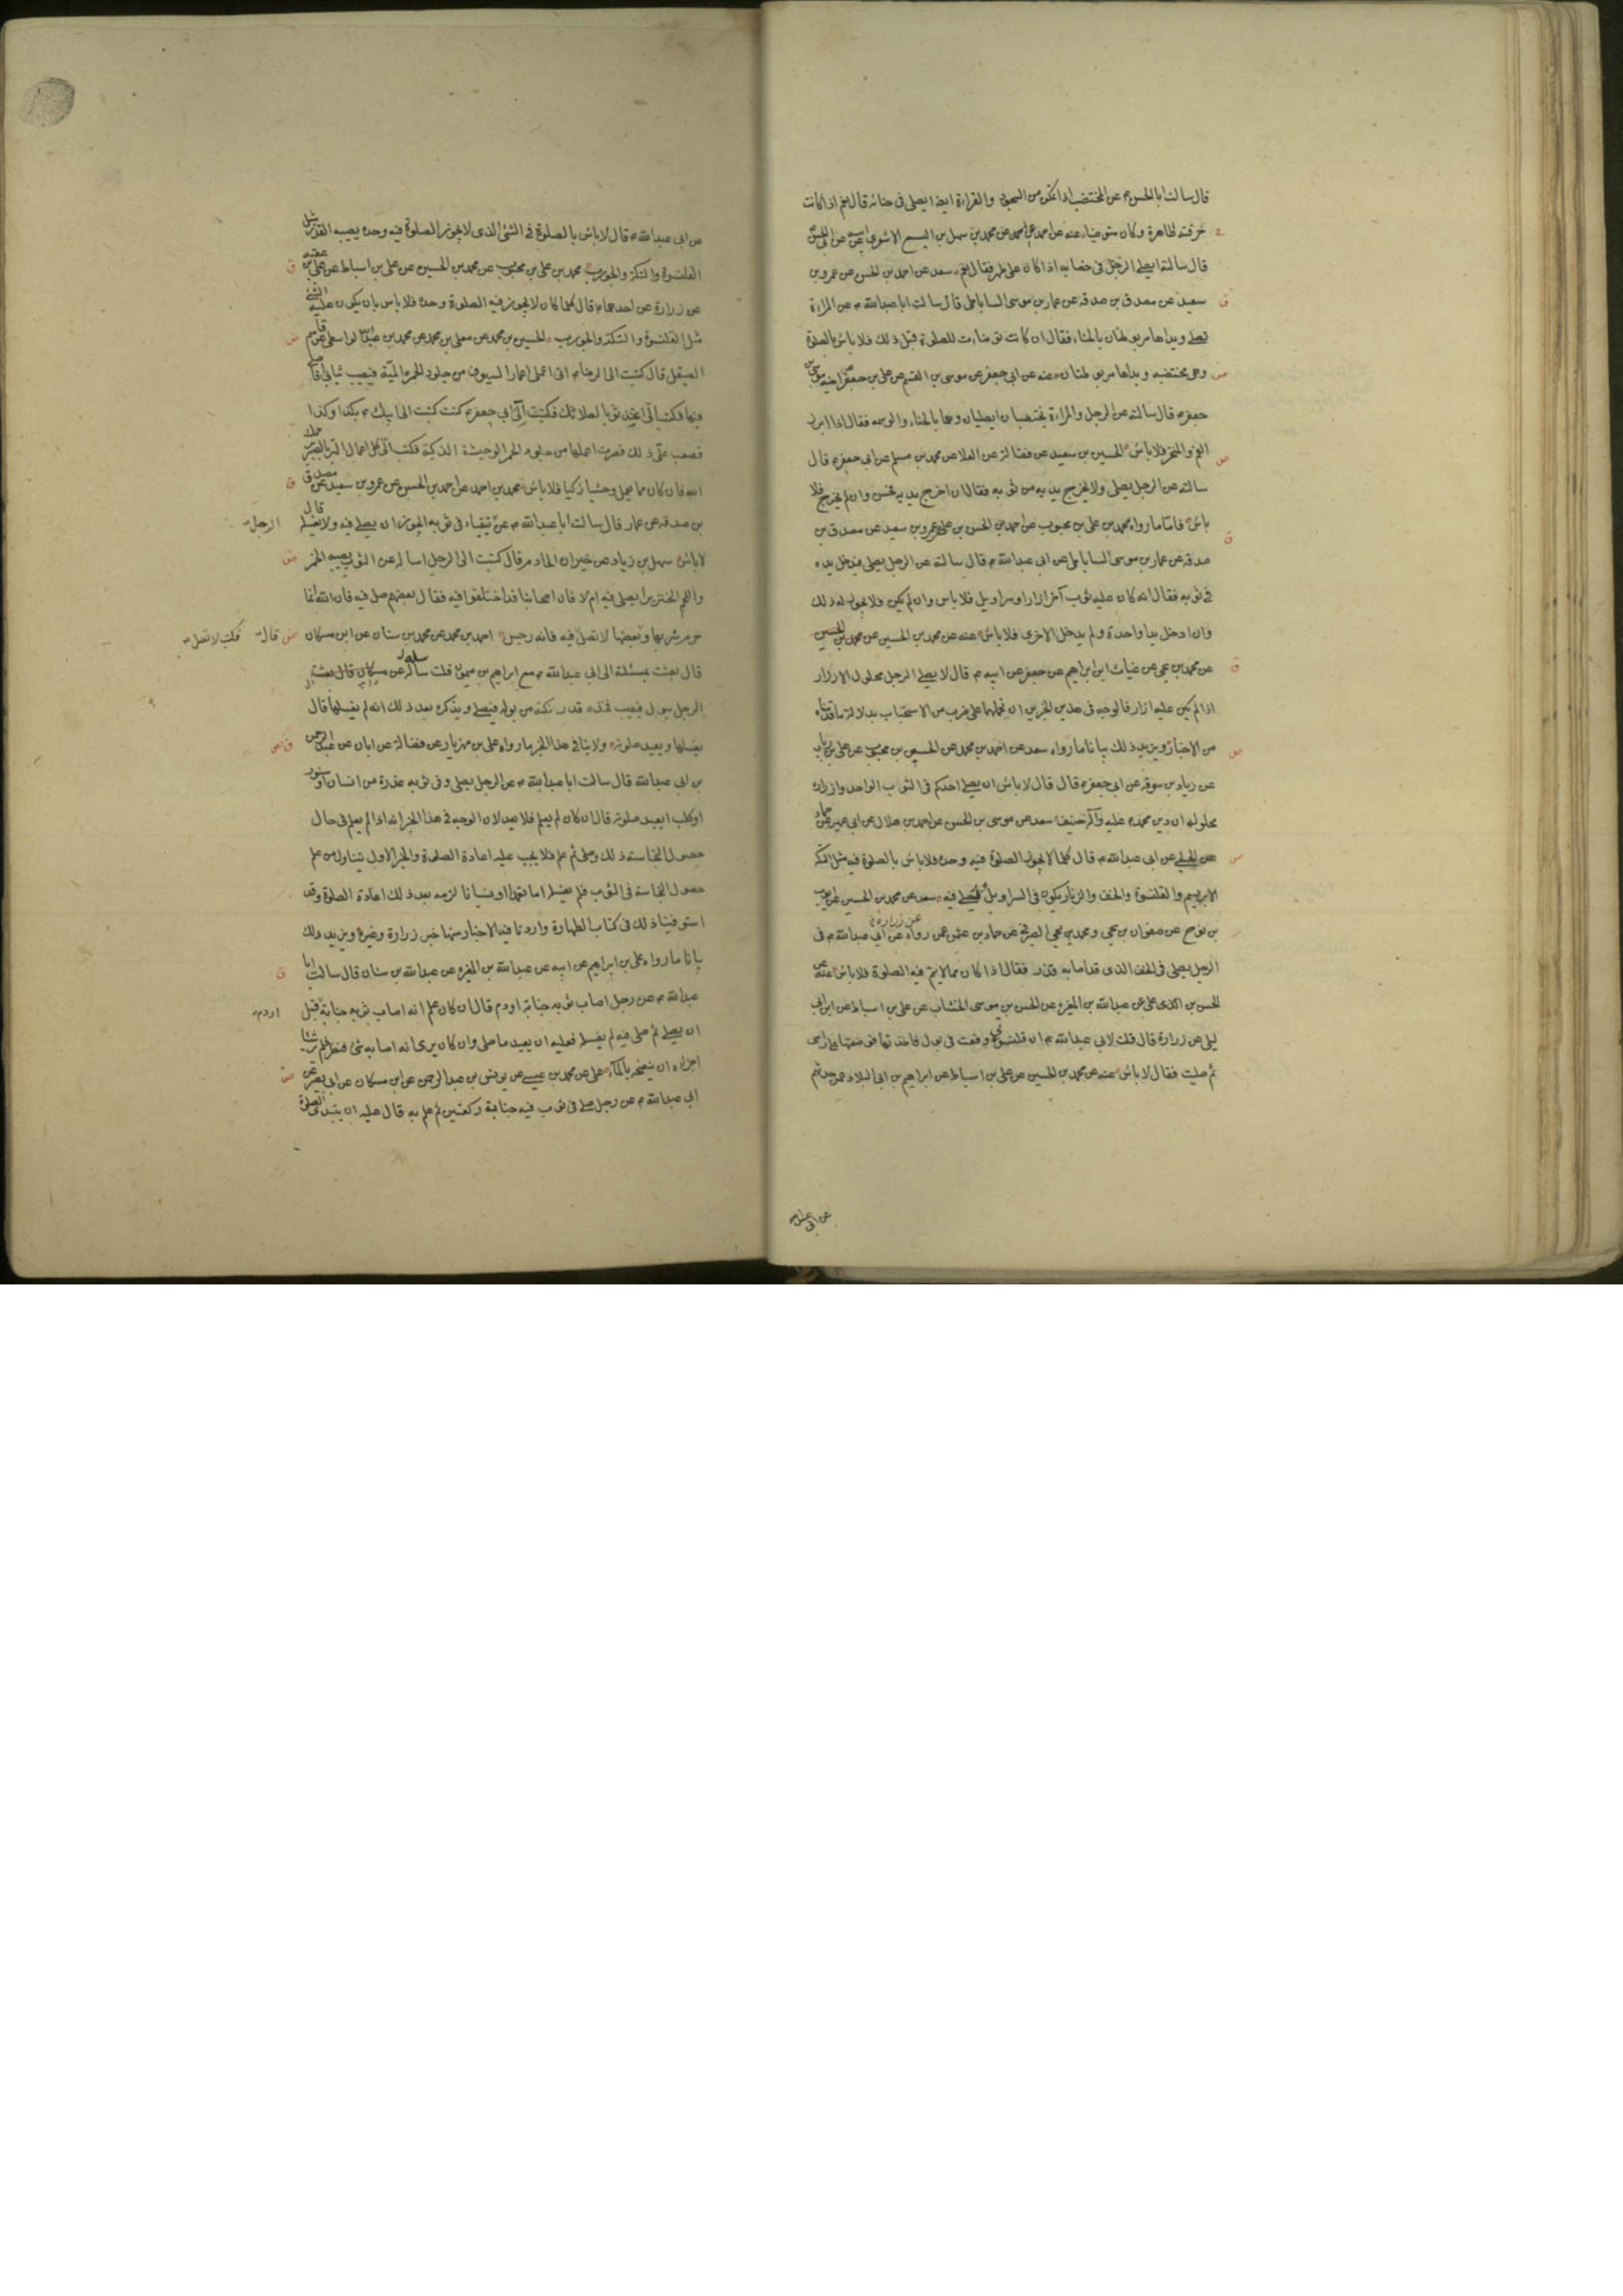 قال سالت ابا الحسن ع عن المختضب اذا تمكن من السجود والقراءة ايضا ايصلى فى حنائه قال نعم اذا كانت
خرقته طاهرة وكان متوضيا عنه عن احمد بن محمد عن محمد بن سهل بن اليسع الاشعرى عن ابيه عن ابى الحسن
قال سالته ايصلى الرجل فى خضابه اذا كان على طهر فقال نعم سعد عن احمد بن الحسن عن عمرو بن
سعيد عن مصدق بن صدقه عن عمار بن موسى الساباطى قال سالت ابا عبدالله ع عن المراة
تصلى ويداها مربوطتان بالحناء فقال ان كانت توضات للصلوة قبل ذلك فلا باس بالصلوة
وهى مختضبه ويداها مربوطتان عنه عن ابى جعفر عن موسى بن القسم عن على بن جعفر عن اخيه موسى بن
جعفر ع قال سالته عن الرجل والمراءة يختضبان ايصليان وهما بالحناء والوسمه فقال اذا ابرز
الفم والمنخر فلا باس الحسين بن سعيد عن فضالة عن العلا عن محمد بن مسلم عن ابى جعفر ع قال
سالته عن الرجل يصلى ولا يخرج يديه من ثوبه فقال ان اخرج يديه فحسن وان لم يخرج فلا
باس فاما ما رواه محمد بن على بن محبوب عن احمد بن الحسن بن على عن عمرو بن سعيد عن مصدق بن
صدقه عن عمار بن موسى الساباطى عن ابى عبدالله ع قال سالته عن الرجل يصلى فيدخل يده
فى ثوبه فقال انه كان عليه ثوب آخر ازار او سراويل فلا باس وان لم يكن فلا يجوز له ذلك
وان ادخل يدا واحدة ولم يدخل الاخرى فلا باس عنه عن محمد بن الحسين عن محمد بن الحسين
عن محمد بن يحيى عن غياث ابن ابراهيم عن جعفر عن ابيه ع قال لا يصلى الرجل محلول الازرار
اذا لم يكن عليه ازار فالوجه فى هذين الخبرين ان نحملهما على ضرب من الاستحباب بدلالة ما قدمناه
من الاخبار ويزيد ذلك بيانا ما رواه سعد عن احمد بن محمد عن الحسين بن محبوب عن على بن رياب
عن زياد بن سوقه عن ابى جعفر ع قال قال لا باس ان يصلى احدكم فى الثوب الواحد وازراره
محلولة ان دين محمد عليه وآله حنيف سعد عن موسى بن الحسن عن احمد بن هلال عن ابى عمير عن حماد
عن الحلبى عن ابى عبدالله ع قال كلما لا يجوز الصلوة فيه وحده فلا باس بالصلوة فيه مثل التكه
الابريسم والقلنسوة والخف والزنار يكون فى السراويل ويصلى فيه سعد عن محمد بن الحسين عن ايوب
بن نوح عن صفوان بن يحيى ومحمد بن يحيى الصيرفى عن حماد بن عثمن عمن رواه عن زرارة عن ابى عبدالله ع فى
الرجل يصلى فى الخف الذى قد اصابه قذر فقال اذا كان مما لا يتم فيه الصلوة فلا باس عنه عن
الحسن بن على عن عبدالله بن المغيره عن الحسن بن موسى الخشاب عن على بن اسباط عن ابن ابى
ليلى عن زرارة قال قلت لابى عبدالله ع ان قلنسوتى وقعت فى بول فاخذتها فوضعتها على راسى
ثم صليت فقال لا باس عنه عن محمد بن الحسين عن على بن اسباط عن ابراهيم بن ابى البلاد عمن حدثهم
عن ابى عبدالله
عن ابى عبدالله ع قال لا باس بالصلوة فى الشئ الذى لا يجوز الصلوة فيه وحده يصيبه القذر مثل
القلنسوة والتكة والجورب محمد بن على بن محبوب عن محمد بن الحسين عن على بن اسباط عن على بن عقبه
عن زرارة عن احدهما ع قال كلما كان لا يجوز فيه الصلوة وحده فلا باس بان يكون عليه الشئ
مثل القلنسوة والتكة والجورب الحسين بن محمد عن معلى بن محمد عن محمد بن عبدالله الواسطى عن قاسم
الصيقل قال كتبت الى الرضا ع انى اعمل اغماد السيوف من جلود الحمر الميتة فيصيب ثيابى افاصلى
فيها فكتب الى اتخذ ثوبا لصلاتك فكتبت الى ابى جعفر ع كنت كتبت الى ابيك ع بكذا وكذا
فصعب على ذلك فصرت اعملها من جلود الحمر الوحشية الذكية فكتب الى كل اعمال البر بالصبر يرحمك
الله فان كان مما تعمل وحشيا ذكيا فلا باس محمد بن احمد عن احمد بن الحسن عن عمرو بن سعيد عن مصدق
بن صدقه عن عمار قال سالت ابا عبدالله ع عن الرجل يتقياء فى ثوبه ايجوز ان يصلى فيه ولا يغسله قال
لا باس سهل بن زياد عن خيران الخادم قال كتبت الى الرجل اساله عن الثوب يصيبه الخمر
ولحم الخنزير ايصلى فيه ام لا فان اصحابنا قد اختلفوا فيه فقال بعضهم صل فيه فان الله انما
حرم شربها وبعضها لا تصل فيه فكتب لا تصل فيه فانه رجس احمد بن محمد عن محمد بن سنان عن ابن مسكان قال
قال بعثت بمسئلة الى ابى عبدالله ع مع ابراهيم بن ميمون قلت سله عن
الرجل يبول فيصيب فخذه قدر نكتة من بوله فيصلى ويذكر بعد ذلك انه لم يغسلها قال
يغسلها ويعيد صلوته ولا ينافى هذا الخبر ما رواه على بن مهزيار عن فضالة عن ابان عن عبدالرحمن
بن ابى عبدالله قال سالت ابا عبدالله ع عن الرجل يصلى وفى ثوبه عذرة من انسان او سنور
او كلب ايعيد صلوته قال ان كان لم يعلم فلا يعيد لان الوجه فى هذا الخبر انه اذا لم يعلم فى حال
حصول النجاسة ذلك وصلى ثم علم فلا يجب عليه اعادة الصلوة والخبر الاول يتناول من علم
حصول النجاسة فى الثوب فلم يغسله اما تعمدا او نسيانا لزمه بعد ذلك اعادة الصلوة وقد
استوفينا ذلك فى كتاب الطهارة واردنا فيه الاخبار منها خبر زرارة وغيره ويزيد ذلك
بيانا ما رواه على بن ابراهيم عن ابيه عن عبدالله بن المغيره عن عبدالله بن سنان قال سالت ابا
عبدالله ع عن رجل اصاب ثوبه جنابة او دم قال ان كان علم انه اصاب ثوبه جنابة او دم قبل
ان يصلى ثم صلى فيه لم يغسله فعليه ان يعيد ما صلى وان كان يرى انه اصابه شئ فنظر فلم ير شيئا
اجزاءه ان ينضحه بالماء على عن محمد بن عيسى عن يونس بن عبدالرحمن عن ابن مسكان عن ابى بصير عن
ابى عبدالله ع عن رجل صلى فى ثوب فيه جنابة ركعتين ثم علم به قال عليه ان يبتدى الصلوة